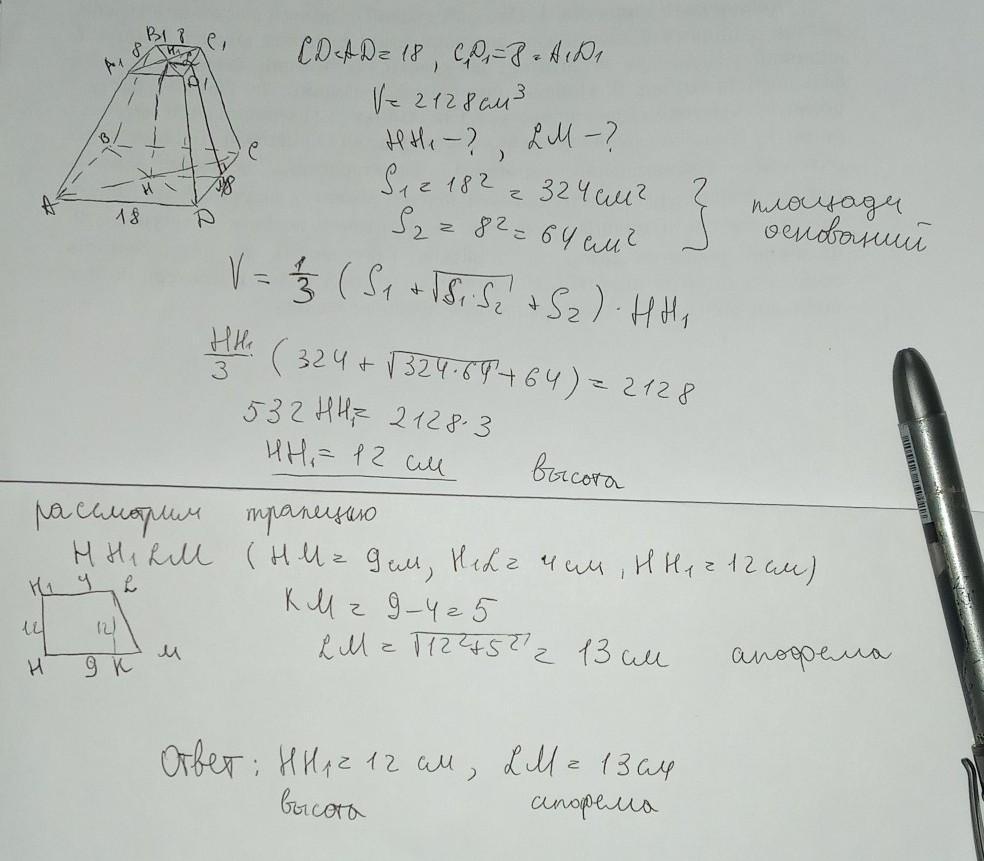 B1 8 C1
A1 8 H1 L
D1
B C
A H M 18
18 D
CD=AD=18, C1D1=8=A1D1
V=2128см³
HH1-?, LM-?
S1=18²=324см²
S2=8²=64см²
} площади
оснований
V=1/3(S1+√(S1·S2)+S2)·HH1
HH1/3(324+√(324·64)+64)=2128
532HH1=2128·3
HH1=12 см высота
рассмотрим трапецию
HH1LM (HM=9см, H1L=4см, HH1=12см)
H1 4 L
12 12
H 9 K M
KM=9-4=5
LM=√(12²+5²)=13см апофема
Ответ: HH1=12 см, LM=13см
высота апофема